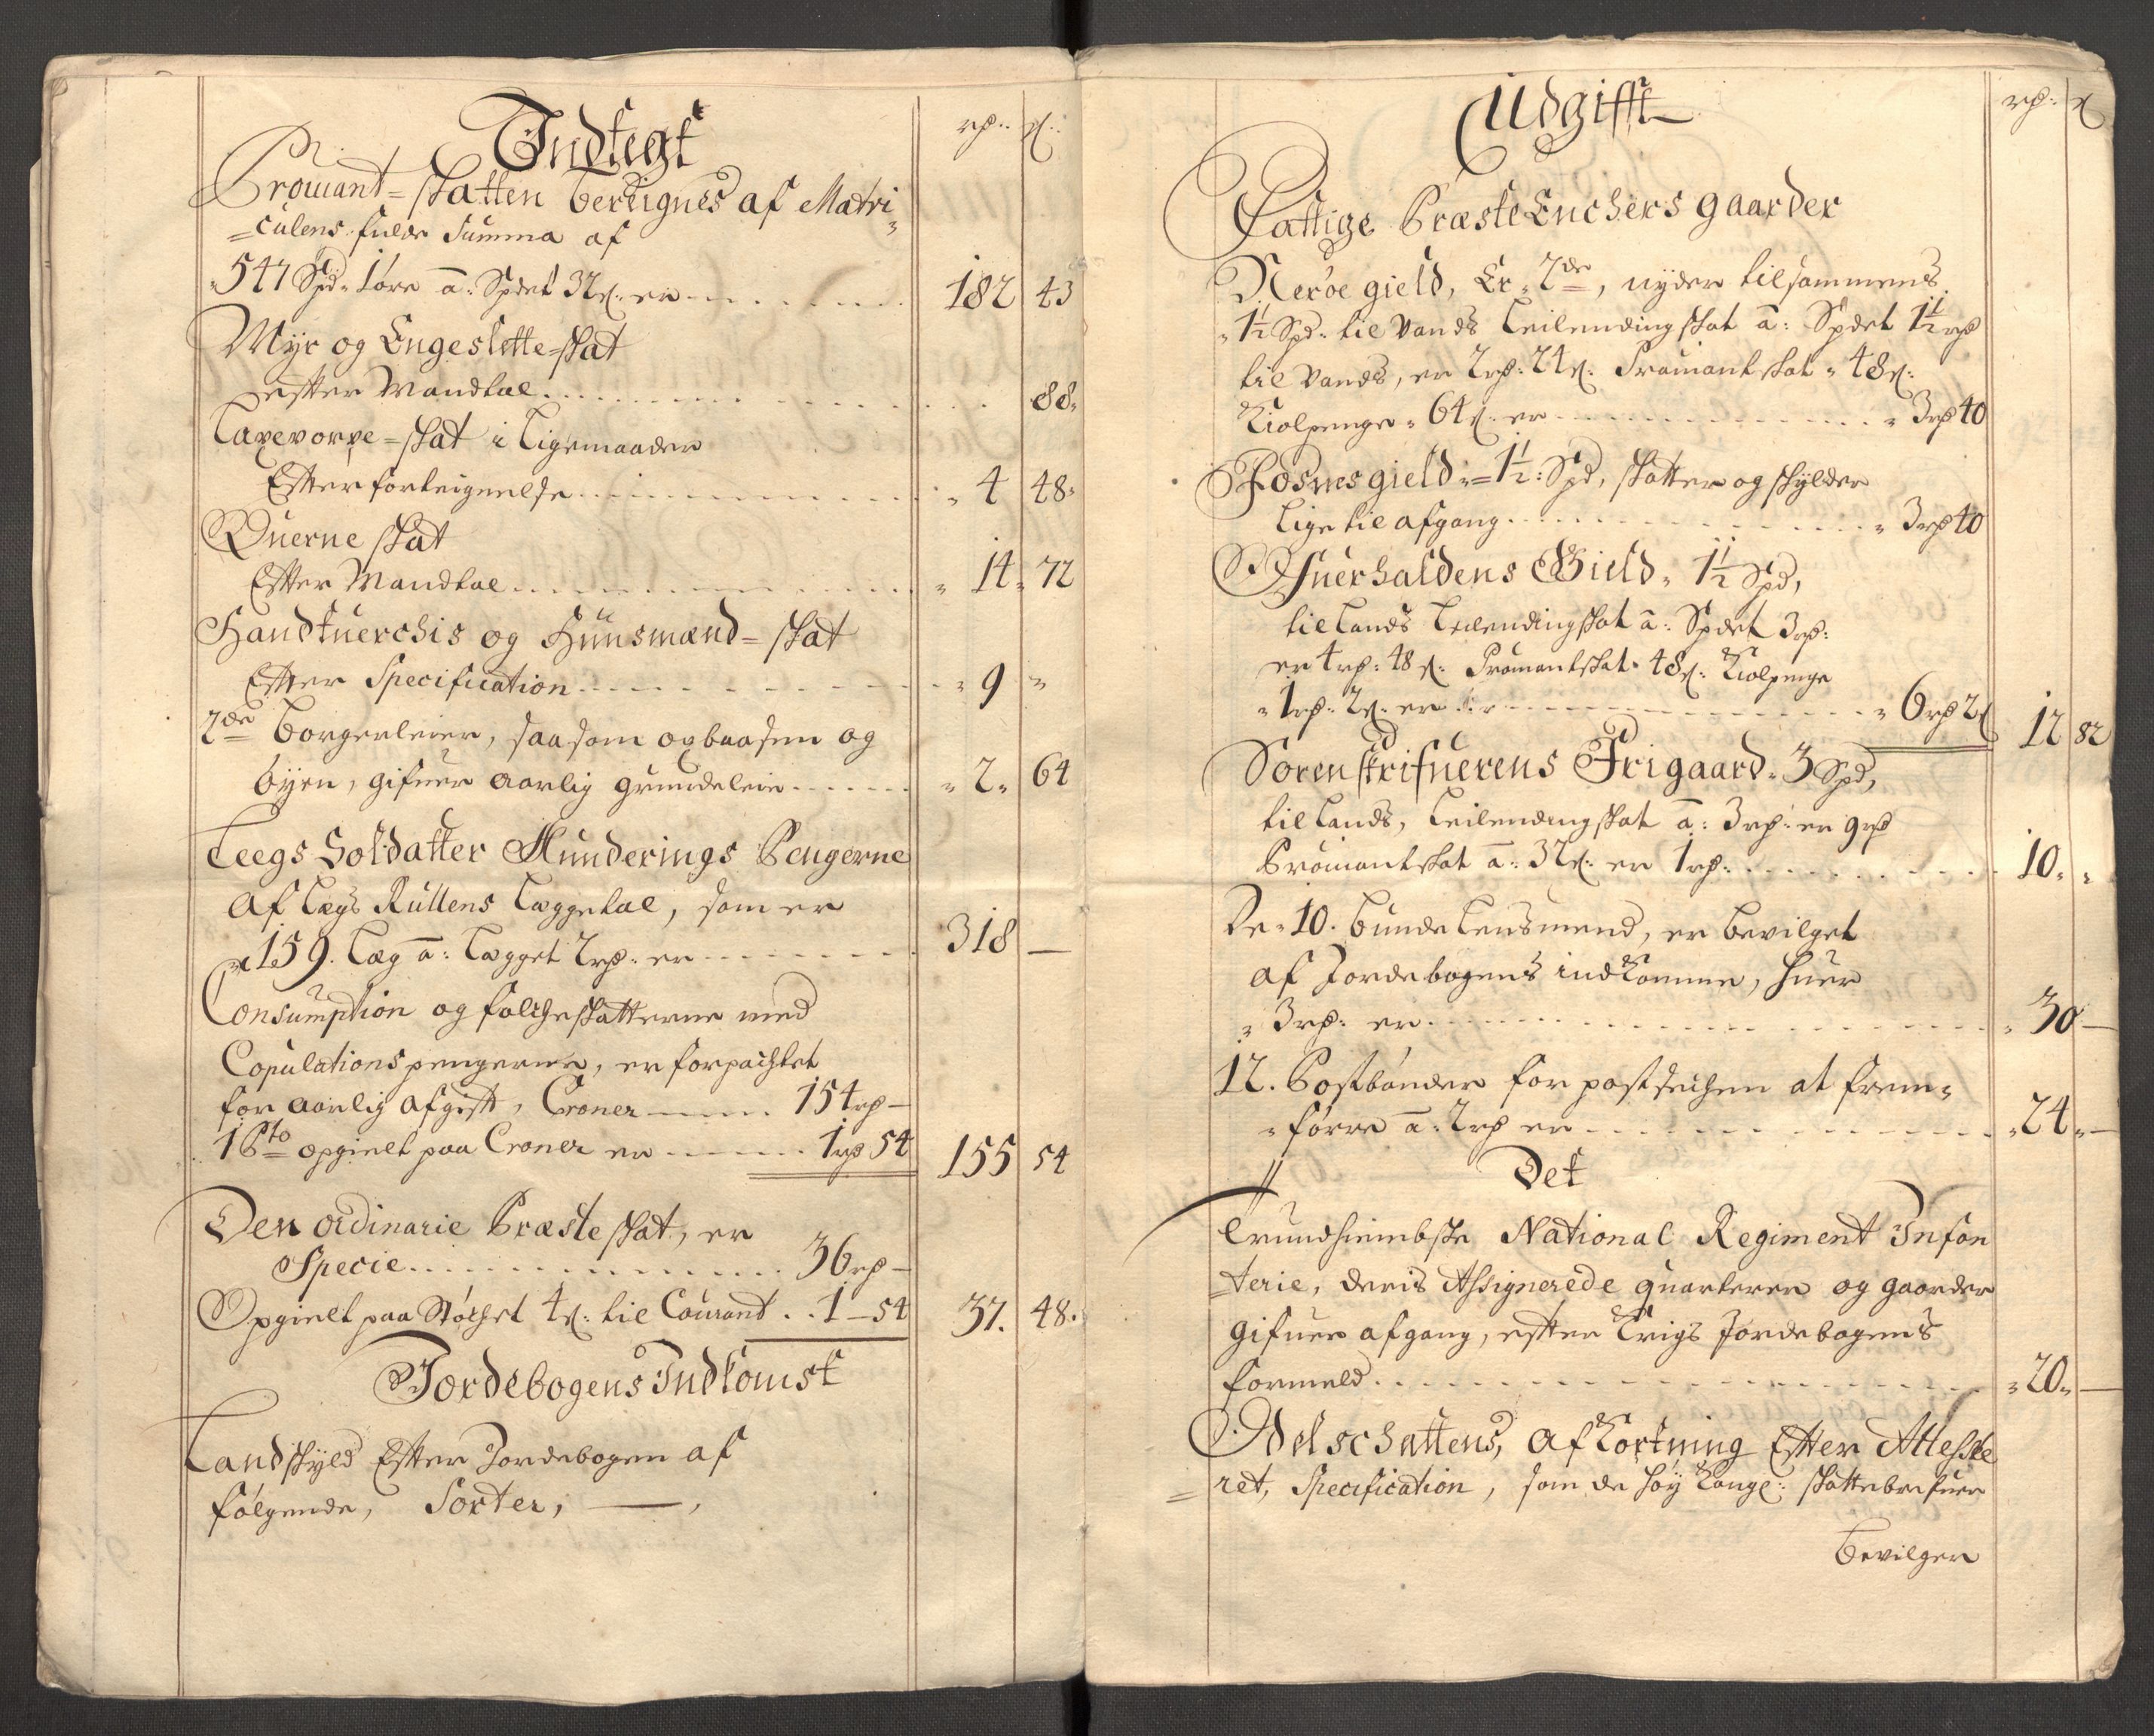 Indtegt
rd: s:
Prowant-skatten bereignes af Matri-
=culens fulde Summa af
547 Spd: 1 øre a: Spdet 32 s: er 182 43
Myr og Engeslette-skat
efter Mandtal 88
Laxevorpe-skat i Ligemaader
Efter forteignelse 4 48
Querne skat
Efter Mandtal 14 72
Handtuerchis og Huusmænd-skat
Efter Specification 9
2de borgerleier, saasom opbaasen og
byen, gifuer aarlig grundeleie 2 64
Leegs Soldatter Munderings Pengerne
af Lægs Rullens Læggetal, som er
159. Læg a: Lægget 2 rd: er 318 —
Consumption og folcheskatterne med
Copulations pengerne, er forpachtet
for aarlig afgift, Croner 154 rd —
1 Pcto opgielt paa Croner er 1 rd 54 155 54
Den ordinarie Præste skat, er
Specie 36 rd —
Opgielt paa Støchet 4 s: til Courant 1 — 54 37. 48.
Jordebogens Indkomst
Landskyld Efter Jordebogen af
følgende, Sorter, —,
Udgifft
rd: s
Fattige Præste Enchers gaarder
Nerøe gield, Er 2de, nyder tilsammens
1½ Spd: til Vands Leilendingskat a: Spdet 1½ rd
til Vands, er 2 rd: 24 s: Prowiantskat 48 s:
Kiolpenge 64 s: er 3 rd 40
Fosnes gield 1½: Spd, skatter og skylder
lige til afgang 3 rd 40
Ofuerhaldens Gield 1½ Spd,
til Lands Leilendingskat a: Spdet 3 rd:
er 4 rd: 48 s: Prowiantskat 48 s: Kiolpenge
1 rd: 2 s: er 6 rd 2 s 12 82
Sorenskrifuerens Frigaard 3 Spd,
til Lands, Leilendingskat a: 3 rd: er 9 rd
Prowiantskat a: 32 s: er 1 rd: 10.
De 10. bunde Lensmend, er bevilget
af Jordebogens indkomme, huer
3 rd: er 30 —
12. Postbønder for postsechen at frem-
=førre a: 2 rd er 24 —
Det
Trundhiembske National Regiment Infan
=terie, deris Assignerede quarterer og gaarder
gifuer afgang, efter Krigs Jordebogens
formeld 20 —
Odelschattens, afkortning Efter Atteste
=ret, Specification, som de høy Kongl: skattebrefuer
bevilger